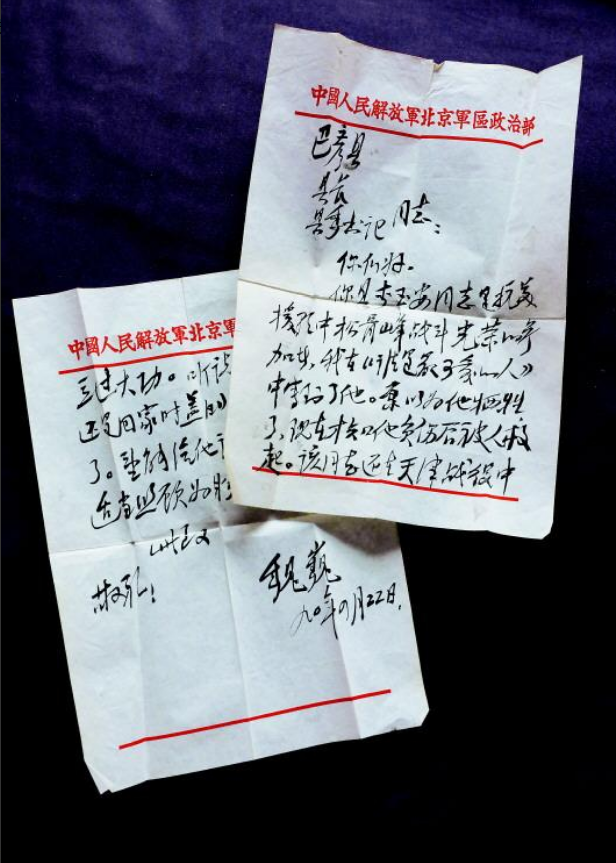 中國人民解放軍北京軍區政治部
巴彦县
县长
县委书记 同志:
你们好。
你县李玉安同志是抗美
援朝中松骨峰战斗光荣的参
加者,我在《谁是最可爱的人》
中写到了他。原以为他牺牲
了,现在核实他负伤后被人救
起。该同志还在天津战役中
中國人民解放軍北京軍
立过大功。听说
还是回家时盖的
了。望能给他
适当照顾为好
此致
敬礼!
魏巍
九〇年4月22日.